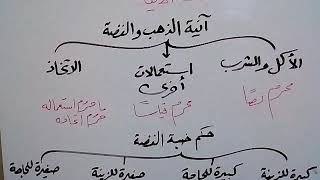 آنية الذهب والفضة
الأكل والشرب استعمالات أخرى الاتخاذ
محرم نصًا محرم قياسًا ما حرم استعماله حرم اتخاذه
حكم ضبة الفضة
كبيرة للزينة كبيرة للحاجة صغيرة للزينة صغيرة للحاجة